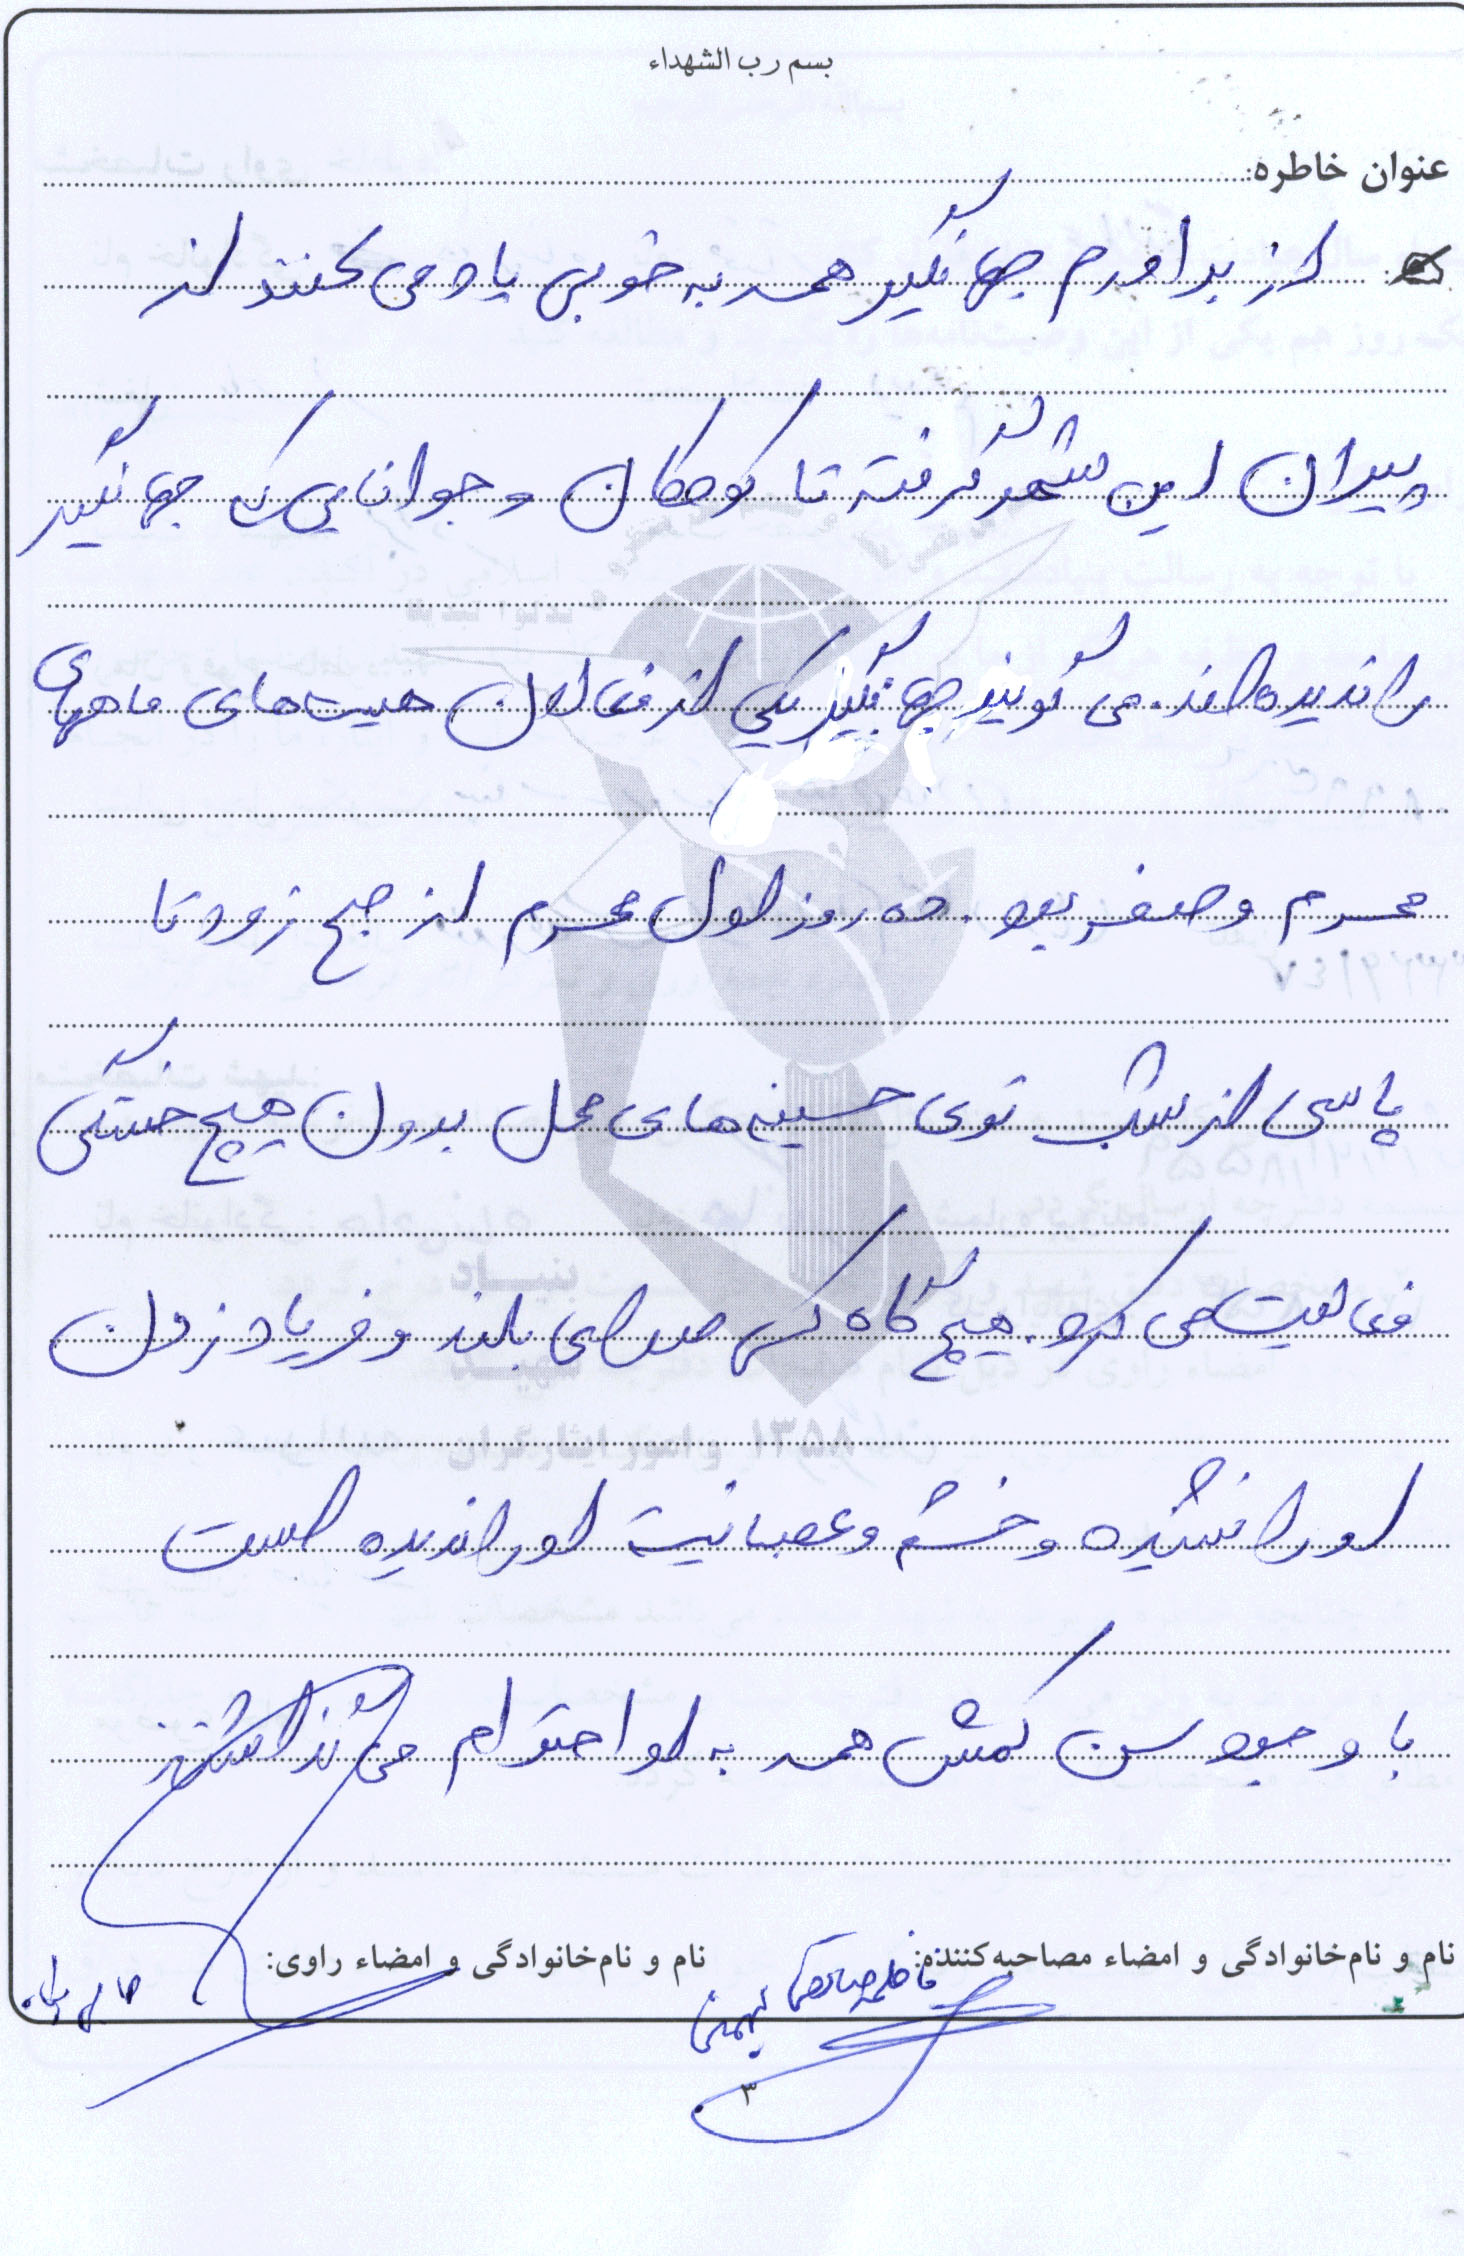 بسم رب الشهداء
عنوان خاطره:
از برادرم جهانگیر همه به خوبی یاد می کنند از
پیران این شهر گرفته تا کودکان و جوانایی که جهانگیر
را ندیده اند. می گویند جهانگیر یکی از فعالان هیت های ماههای
محرم و صفر بود. ده روز اول محرم از صبح زود تا
پاسی از شب توی حسینه های محل بدون هیچ خستگی
فعالیت می کرد. هیچ گاه کسی صدای بلند و فریاد زدن
او را نشنیده و خشم و عصبانیت او را ندیده است
با وجود سن کمش همه به او احترام می گذاشتند
نام و نام‌خانوادگی و امضاء مصاحبه‌کننده: فاطمه
نام و نام‌خانوادگی و امضاء راوی:
۳
بنیاد
شهید
۱۳۵۸ و امور ایثارگران